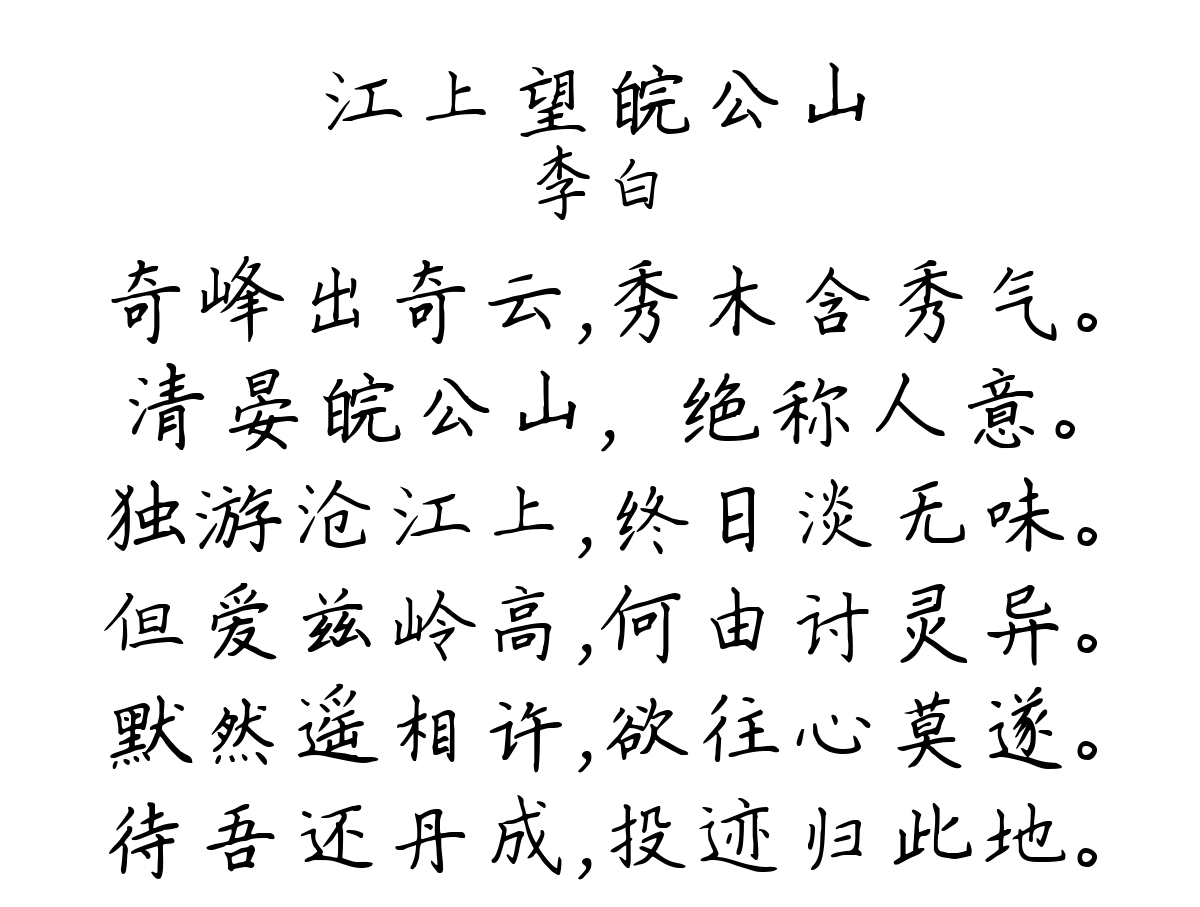 江上望皖公山
李白
奇峰出奇云,秀木含秀气。
清晏皖公山,绝称人意。
独游沧江上,终日淡无味。
但爱兹岭高,何由讨灵异。
默然遥相许,欲往心莫遂。
待吾还丹成,投迹归此地。